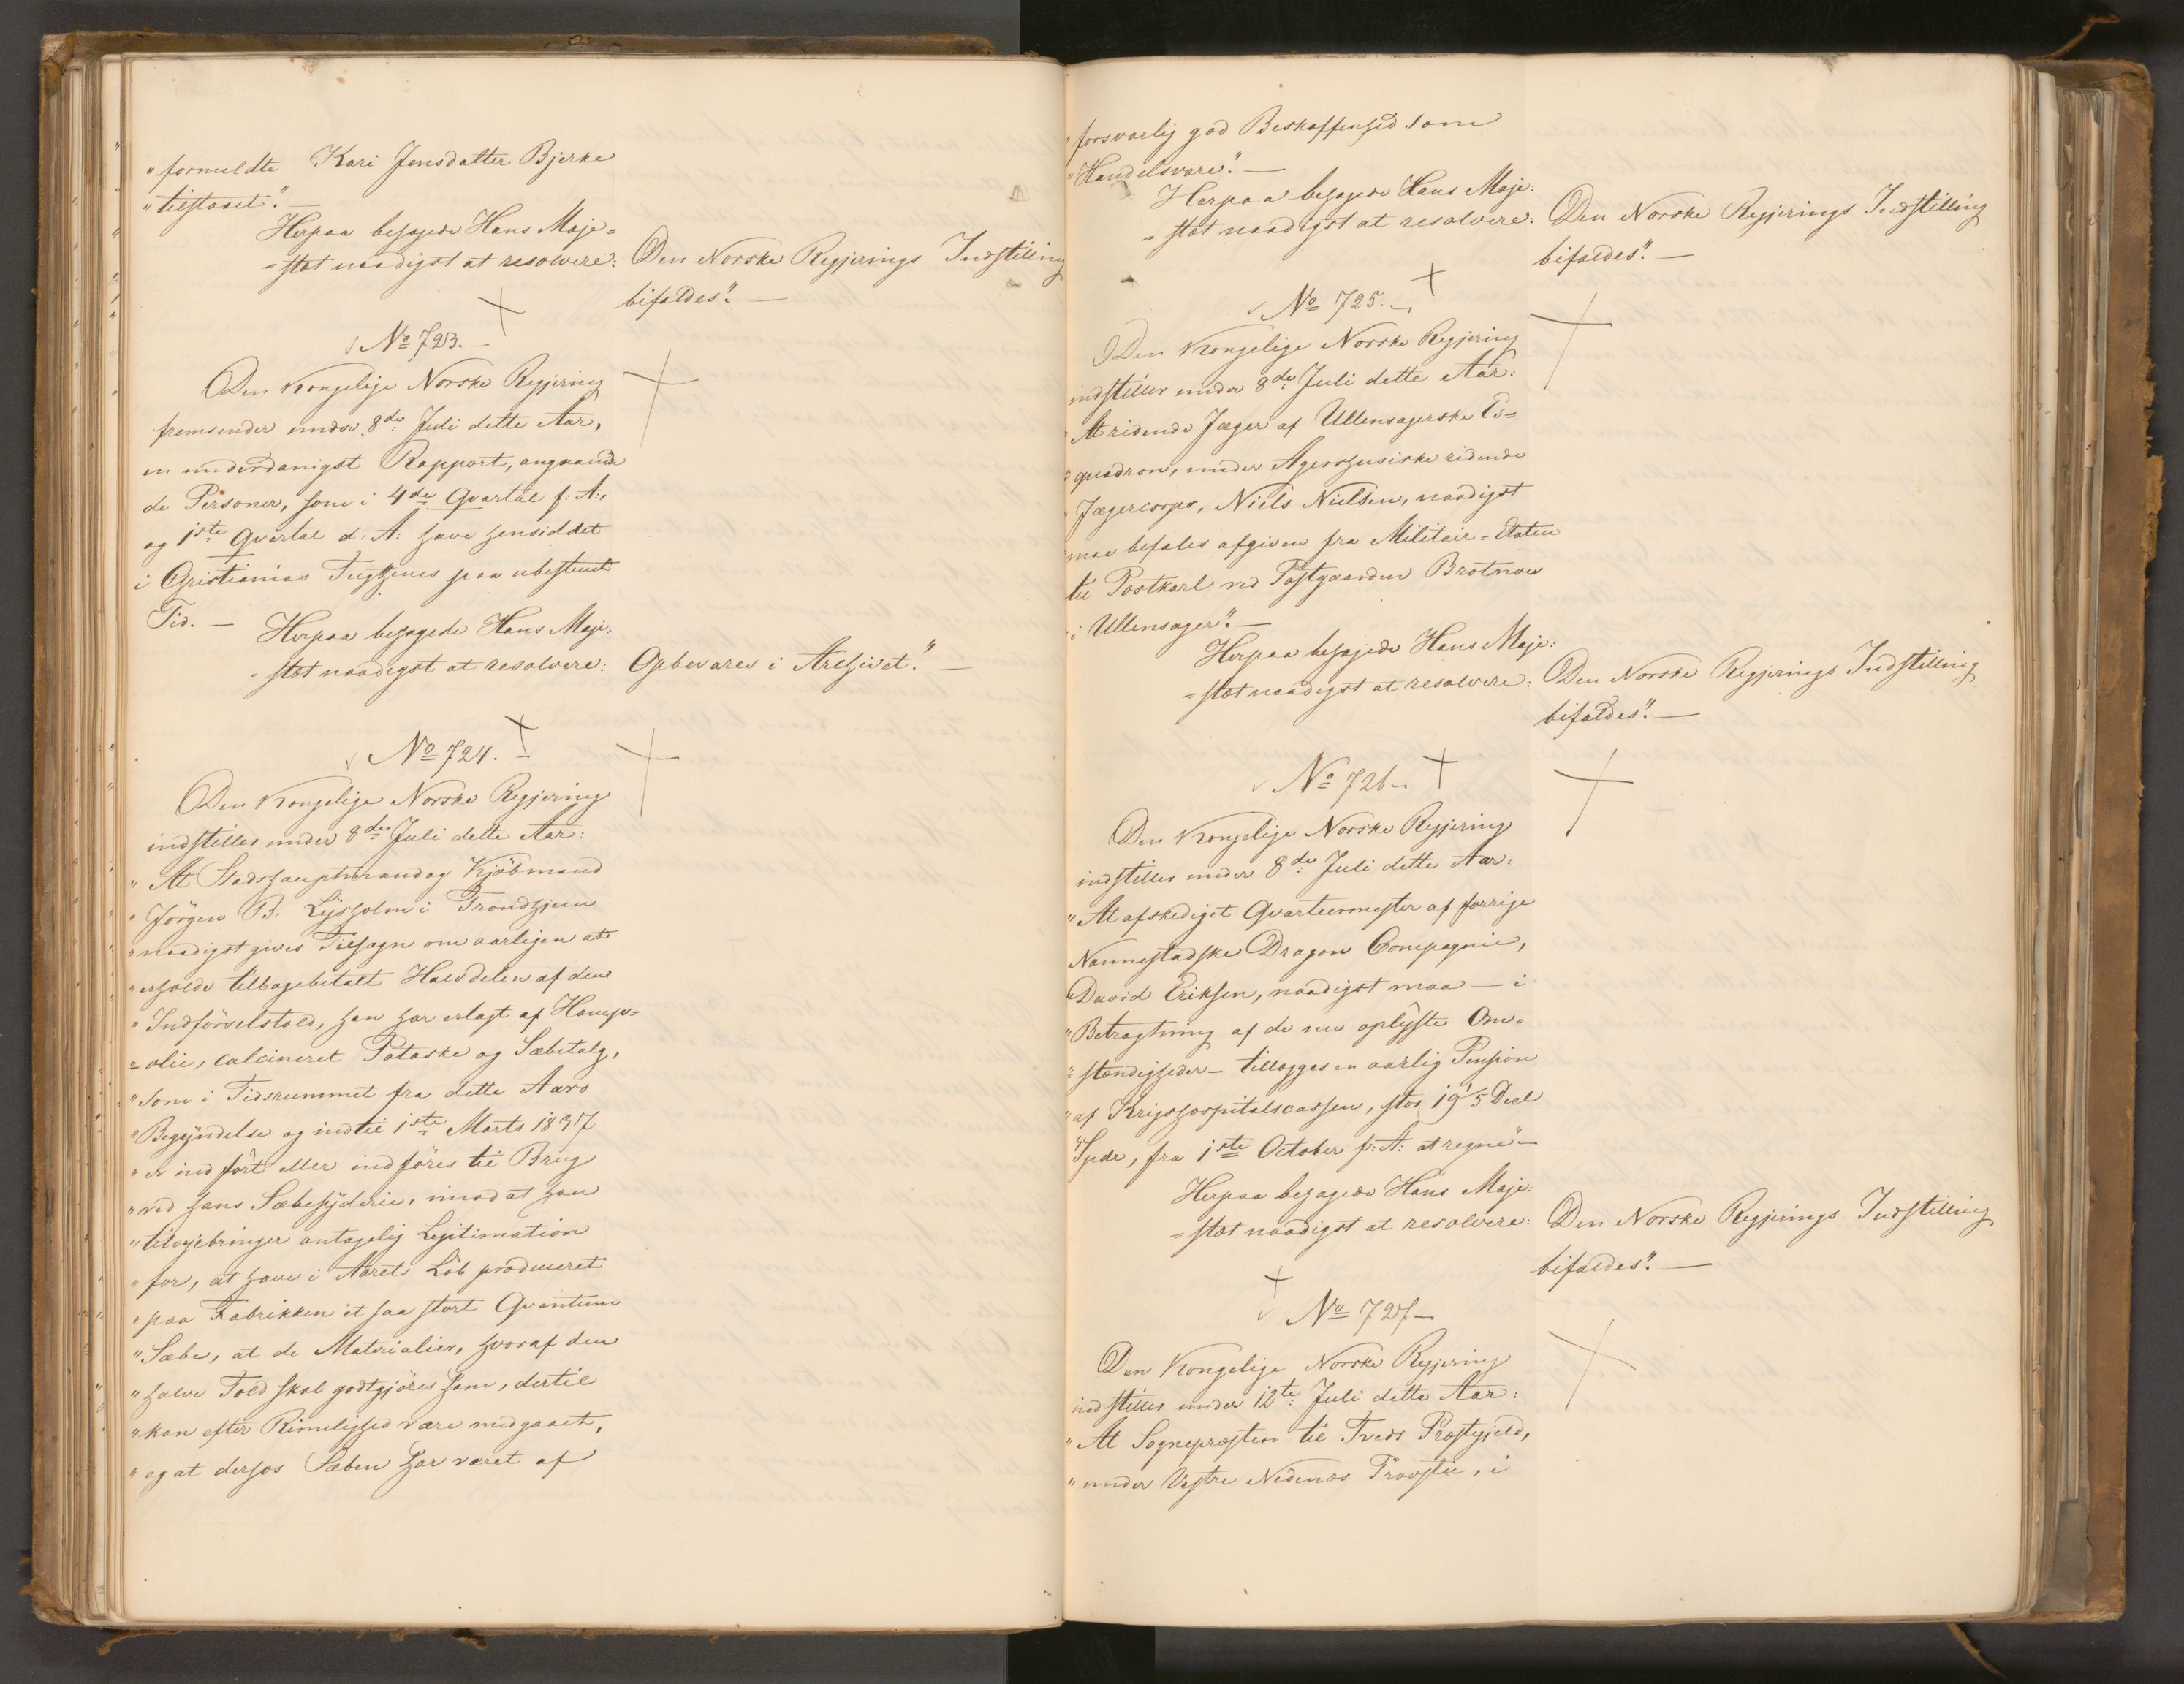 "formeldte Kari Jensdatter Bjerke
"tilstaaet". —
Herpaa behagede Hans Maje=
=stæt naadigst at resolvere: Den Norske Regjerings Indstilling
bifaldes". —
No 723. —
Den Kongelige Norske Regjering
fremsender under 8de Juli dette Aar,
en underdanigst Rapport, angaaende
de Personer, som i 4de Qvartal f: A:,
og 1ste Qvartal d: A: have hensiddet
i Christianias Tugthuus paa ubestemt
Tid. —
Herpaa behagede Hans Maje=
=stæt naadigst at resolvere: Opbevares i Archivet." —
No 724. —
Den Kongelige Norske Regjering
indstiller under 8de Juli dette Aar:
"At Stadshauptmand og Kjöbmand
"Jörgen B. Lysholm i Trondhjem
"naadigst gives Tilsagn om aarligen at
"erholde tilbagebetalt Halvdelen af den
"Indförselstold, han har erlagt af Hamp=
=olie, calcineret Potaske og Sæbetalg,
"som i Tidsrummet fra dette Aars
"Begyndelse og indtil 1ste Marts 1837
"er indfört eller indföres til Brug
"ved hans Sæbesyderie, imod at han
"tilveiebringer antagelig Legitimation
"for, at have i Aarets Löb produceret
"paa Fabrikken et saa stort Qvantum
"Sæbe, at de Materialier, hvoraf den
"halve Told skal godtgjöres ham, dertil
"kan efter Rimelighed være medgaaet,
"og at derhos Sæben har været af
"forsvarlig god Beskaffenhed som
"Handelsvare". —
Herpaa behagede Hans Maje=
=stæt naadigst at resolvere: Den Norske Regjerings Indstilling
bifaldes". —
No 725. —
Den Kongelige Norske Regjering
indstiller under 8de Juli dette Aar:
"At ridende Jæger af Ullensagerske Es=
"quadron, under Agershusiske ridende
"Jægercorps, Niels Nielsen, naadigst
"maa befales afgiven fra Militair=Etaten
til Postkarl ved Postgaarden Brotnow
"i Ullensager". —
Herpaa behagede Hans Maje=
=stæt naadigst at resolvere: Den Norske Regjerings Indstilling
bifaldes". —
No 726 —
Den Kongelige Norske Regjering
indstiller under 8de Juli dette Aar:
"At afskediget Qvarteermester af forrige
Nannestadske Dragon Compagnie,
"David Eriksen, naadigst maa — i
"Betragtning af de nu oplyste Om=
"stændigheder — tillægges en aarlig Pension
"af Krigshospitalscassen, stor 19 1/5 Deel
"Spdr, fra 1ste October f: A: at regne" —
Herpaa behagede Hans Maje=
=stæt naadigst at resolvere: Den Norske Regjerings Indstilling
bifaldes". —
No 727 —
Den Kongelige Norske Regjering
indstiller under 12te Juli dette Aar:
"At Sognepræsten til Tveds Præstegjeld,
"under Vestre Nedenæs Provstie, i